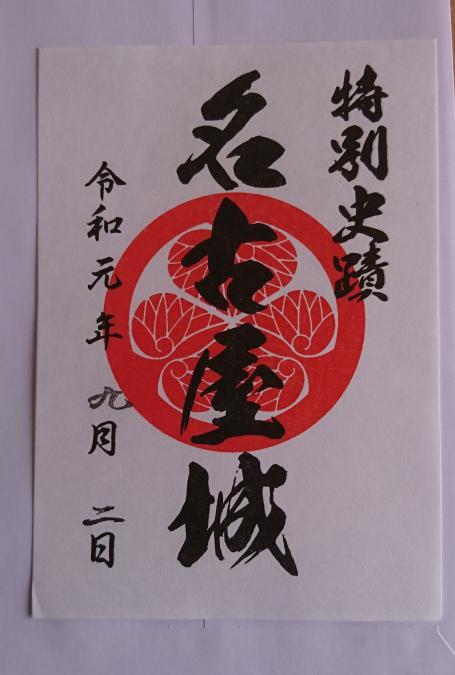 特別史蹟
名古屋城
令和元年 九月 二日